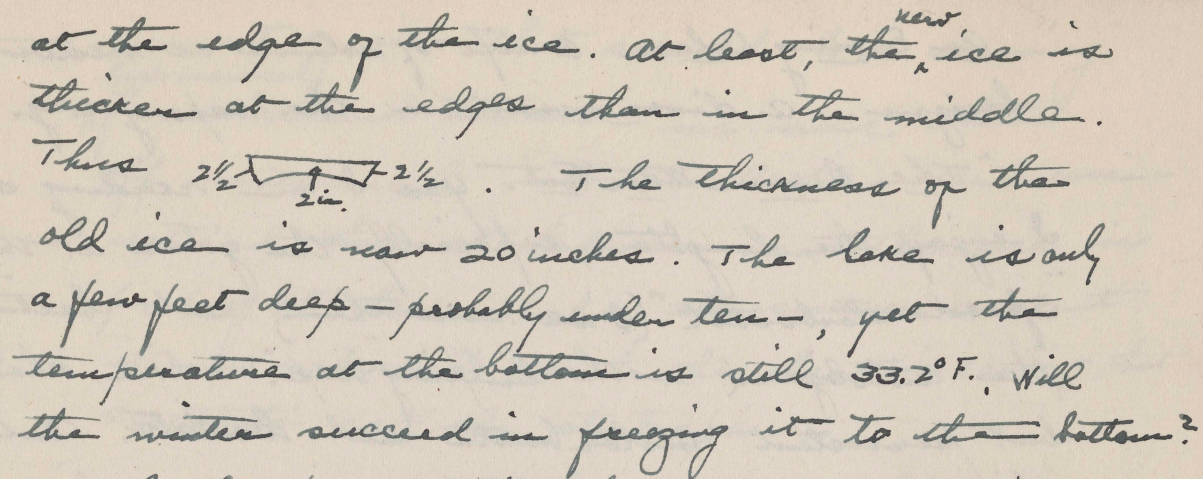 at the edge of the ice. At least, the new ice is
thicker at the edges than in the middle.
Thus 2½ 2 in. 2½ . The thickness of the
old ice is now 20 inches. The lake is only
a few feet deep – probably under ten –, yet the
temperature at the bottom is still 33.2° F. Will
the winter succeed in freezing it to the bottom?